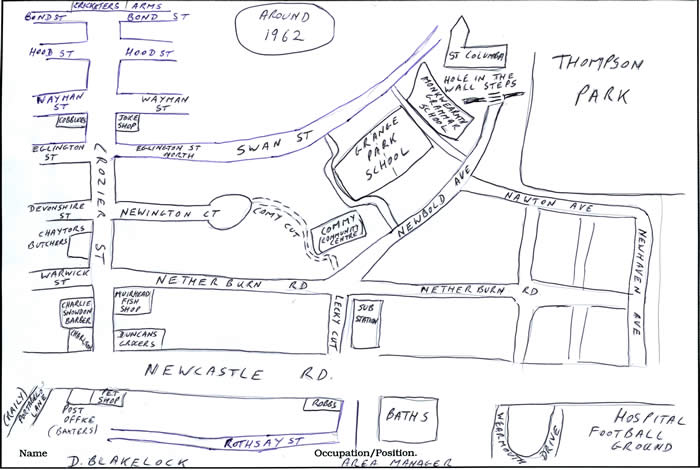 CRICKETERS ARMS
BOND ST
BOND ST
AROUND
1962
HOOD ST
HOOD ST
ST COLUMBA
THOMPSON
PARK
HOLE IN THE
WALL STEPS
MONKWEARMOUTH
GRAMMAR
SCHOOL
WAYMAN
ST
WAYMAN
ST
COBBLERS
JOKE
SHOP
EGLINGTON
ST
EGLINGTON ST
NORTH
SWAN ST
GRANGE
PARK
SCHOOL
CROZIER ST
NEWBOLD AVE
NAWTON AVE
NEWHAVEN AVE
DEVONSHIRE
ST
NEWINGTON CT
COMMY CUT
COMMY
COMMUNITY
CENTRE
CHAYTORS
BUTCHERS
WARWICK
ST
NETHERBURN RD
NETHERBURN RD
CHARLIE
SNOWDON
BARBER
MUIRHEAD
FISH
SHOP
LECKY CUT
SUB
STATION
DUNCANS
GROCERS
NEWCASTLE RD.
(RAILY)
PORTOBELLO
LANE
PET
SHOP
POST
OFFICE
(BAXTERS)
ROBBS
BATHS
WEARMOUTH
DRIVE
HOSPITAL
FOOTBALL
GROUND
ROTHSAY ST
Name
Occupation/Position.
D. BLAKELOCK
AREA MANAGER